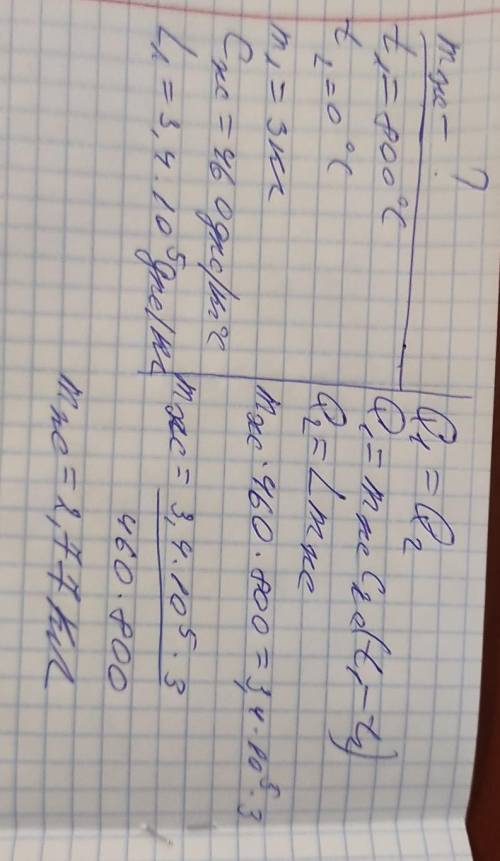 mж — ?
t₁ = 800°C
t₂ = 0°C
m₁ = 3 кг
Cж = 460 дж/кг°C
L₁ = 3,4 · 10⁵ дж/кг
Q₁ = Q₂
Q₁ = mжCж(t₁ – t₂)
Q₂ = Lmж
mж · 460 · 800 = 3,4 · 10⁵ · 3
mж = 3,4 · 10⁵ · 3
460 · 800
mж = 2,77 кг